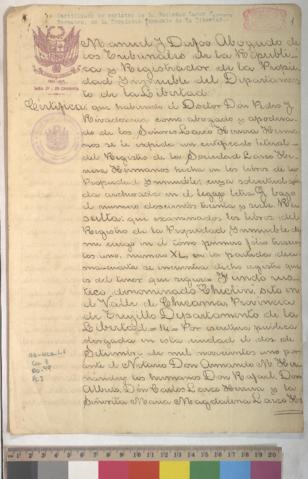 Manuel J. Dufoo Abogado de
los Tribunales de la Repúbli-
ca y Registrador de la Propie-
dad Inmueble del Departamen-
to de la Libertad
Certifica: que habiendo el Doctor Don Pedro J.
Rivadeneira como abogado y apodera-
do de los Señores Larco Herrera Herma-
nos se le expida un certificado literal
del Registro de la Sociedad Larco He-
rrera Hermanos hecha en los libros de la
Propiedad Inmueble; cuya solicitud que-
da archivada en el legajo letra G bajo
el número doscientos treinta y nueve Re-
sulta: que examinados los libros del
Registro de la Propiedad Inmueble de
mi cargo en el tomo primero folio trescien-
tos uno, número XL, en la partida deci-
ma cuarta se encuentra dicho registro que
es del tenor que sigue: Fundo rús-
tico denominado Chiclin, sito en
el Valle de Chicama, Provincia
de Trujillo Departamento de la
Libertad.—14.—Por escritura pública
otorgada en esta ciudad el dos de
Setiembre de mil novecientos uno por
ante el Notario Don Armando M. Her-
nández los hermanos Don Rafael, Don
Alberto, Don Carlos Larco Herrera y la
Señorita María Magdalena Larco He